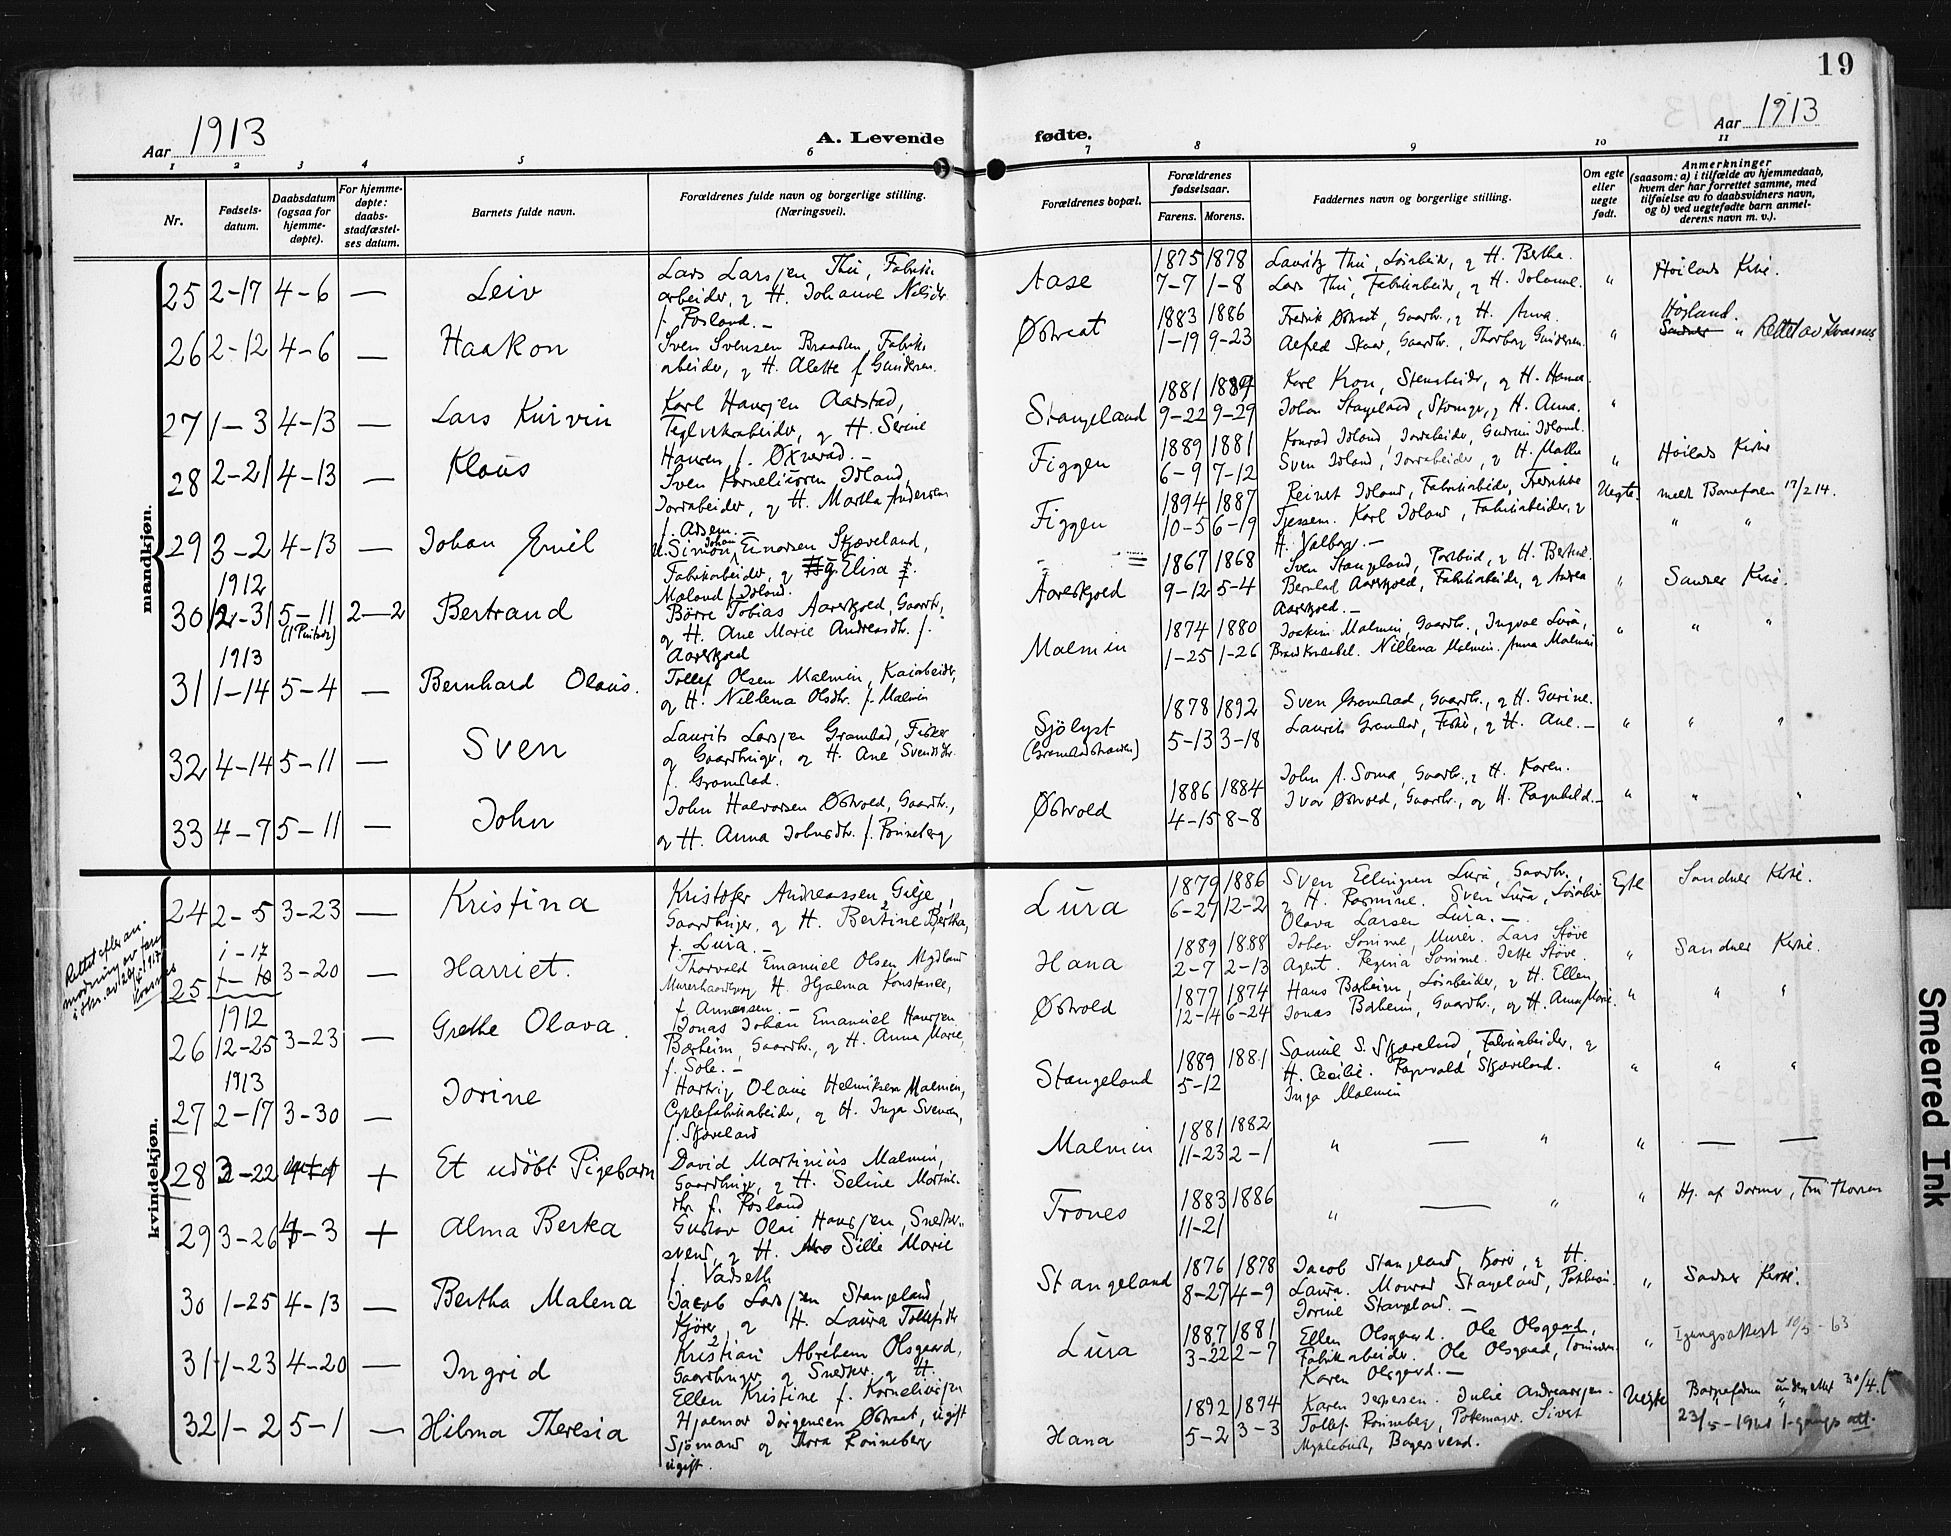 19
Aar 1913
A. Levende
fødte.
Aar 1913
1 2 3 4 5 6 7 8 9 10 11
Nr.
Fødsels-
datum.
Daabsdatum
(ogsaa for
hjemme-
døpte).
For hjemme-
døpte:
daabs-
stadfæstel-
ses datum.
Barnets fulde navn.
Forældrenes fulde navn og borgerlige stilling.
(Næringsvei).
Forældrenes bopæl.
Forældrenes
fødselsaar.
Farens. Morens.
Faddernes navn og borgerlige stilling.
Om egte
eller
uegte
født.
Anmerkninger
(saasom: a) i tilfælde av hjemmedaab,
hvem der har forrettet samme, med
tilføielse av to daabsvidners navn,
og b) ved uegtefødte barn anmel-
derens navn m. v.).
mandkjøn.
25 2-17 4-6 — Leiv
Lars Larsen Thu, Fabrik-
arbeider, og H. Johanne
f. Posland. —
Aase
1875 1878
7-7 1-8
Lauritz Thu, og H. Bertha.
Lars Thu, Fabrikarbeider, og H. Johanne.
"
Høilands Kirke.
26 2-12 4-6 — Haakon
Sven Svensen Braaten, Fabrik-
arbeider, og H. Alette f. Gundersen.
Østraat
1883 1886
1-19 9-23
Fredrik Østraat, Gaardbr., og H. Anna.
Alfred Skaar, Gaardbr., Thorborg Gundersen.
"
Høiland.
Sandnes " Rettet av
27 1-3 4-13 — Lars Kurvin
Karl Hansen Aarstad,
Teglverksarbeider, og H. Serine
Hansen f. Øxnevad. —
Stangeland
1881 1884
9-22 9-29
Karl Kron, Stenarbeider, og H. Hanna.
Johan Stangeland, og H. Anna.
"
28 2-21 4-13 — Klaus
Sven Korneliussen Idland,
Jordarbeider, og H. Martha Andersen
Figgen
1889 1881
6-9 7-12
Konrad Idland, Jordarbeider, Gudrun Idland.
Sven Idland, Jordarbeider, og H. Malla
"
Høilands Kirke
29 3-2 4-13 — Johan Emil
Simon Johan Enoksen Skjæveland,
Fabrikarbeider, og Elisa f.
Maland f. Idland.
Figgen
1894 1887
10-5 6-19
Reinert Idland, Fabrikarbeider, Fredrikke
Tjessem. Karl Idland, Fabrikarbeider, og
H. Valborg. —
Uegte.
meldt Barnefaren 17/2 14.
" "
1912
30 12-31 5-11 2-2 Bertrand
(1 Pintsed.)
Børre Tobias Aareskjold, Gaardbr.,
og H. Ane Marie Andreasdtr. f.
Aareskjold
Aareskjold
1867 1868
9-12 5-4
Sven Stangeland, Postbud, og H. Bertine
Berntad Aareskjold, Fabrikarbeider, og Andrea
Aareskjold. —
"
Sandnes Kirke.
1913
31 1-14 5-4 — Bernhard Olaus.
Tollef Olsen Malmin, Kaiarbeider,
og H. Nillena Olsdtr. f. Malmin
Malmin
1874 1880
1-25 1-26
Joakim Malmin, Gaardbr., Ingval Lura,
Nillena Malmin. Anna Malmin
" " "
32 4-14 5-11 — Sven
Laurits Larsen Gramstad, Fisker
og Gaardbruger, og H. Ane Svendsdtr.
f. Gramstad.
Sjölyst
(Gramstadstranden)
1878 1892
5-13 3-18
Sven Gramstad, Gaardbr., og H. Gurine.
Laurits Gramstad, Fisker, og H. Ane. —
" " "
33 4-7 5-11 — John
John Halvorsen Østvold, Gaardbr.,
og H. Anna Johnsdtr. f. Rönneberg
Østvold
1886 1884
4-15 8-8
John A. Soma, Gaardbr., og H. Karen.
Ivar Østvold, Gaardbr., og H. Ragnhild. —
" " "
kvindekjøn.
24 2-5 3-23 — Kristina
Kristofer Andreassen Gilje,
Gaardbruger, og H. Bertine Bertha,
f. Lura. —
Lura
1879 1886
6-27 12-2
Sven Ellingsen Lura, Gaardbr.,
og H. Rasmine. Sven Lura,
Olava Larsen Lura. —
Egte
Sandnes Kirke.
Rettet efter an-
modning av
1-17
25 1-18 3-20 — Harriet.
Thorvald Emanuel Olsen Mydland
Murerhaandverk, H. Hjalma Konstanse,
f. Annersen. —
Hana
1889 1888
2-7 2-13
Johan Somme, Murer. Lars Støve
Agent. Regina Somme. Jette Støve.
"
Sandnes Kirke.
1912
26 12-25 3-23 — Grethe Olava.
Jonas Johan Emanuel Hansen
Bærheim, Gaardbr., og H. Anna Marie,
f. Sole. —
Østvold
1877 1874
12-14 6-24
Hans Bærheim, og H. Ellen.
Jonas Bærheim, Gaardbr., og H. Anna Marie.
" " "
1913
27 2-17 3-30 — Jorine
Hartvig Olaus Helmiksen Malmin,
Cyklefabrikarbeider, og H. Inga Svensen,
f. Skjæveland
Stangeland
1889 1881
5-12
Samuel S. Skjæveland, Fabrikarbeider, og
H. Cecilie. Ragnvald Skjæveland.
Inga Malmin
" " "
28 3-22 + Et udöbt Pigebarn
David Martinius Malmin,
Gaardbruger, og H. Seline Martine-
dtr. f. Rosland
Malmin
1881 1882
11-23 2-1
" — " " — —
29 3-26 4-3 + Alma Berka
Gustav Olai Hansen, Snedker-
svend, og H. Sille Marie
f. Vadseth
Trones
1883 1886
11-21
" — " "
Hj. af Jormor, Fru Thorsen
30 1-25 4-13 — Bertha Malena
Jacob Larsen Stangeland,
Kjører, og H. Laura Tollefsdtr
Stangeland
1876 1878
8-27 4-9
Jacob Stangeland, og H.
Laura. Monrad Stangeland,
Jorine Stangeland. —
"
Sandnes Kirke.
31 1-23 4-20 — Ingrid
Kristian Abraham Olsgaard,
Gaardbruger og Snedker, og H.
Ellen Kristine f. Korneliussen
Lura
1887 1881
3-22 2-7
Ellen Olsgaard. Ole Olsgaard,
Fabrikarbeider. Ole Olsgaard,
Karen Olsgaard. —
"
Igangsattest 10/5-63
32 1-2 5-1 — Hilma Theresia
Hjalmar Jörgensen Østraat, ugift
Sjömand og Thora Rönneberg
ugift.
Hana
1892 1894
5-2 3-3
Karen Jespersen. Julie Andreassen.
Tollef Rönneberg, Pottemager. Sivert
Myklebust, Bagersvend.
Uegte
Barnefaren underrettet 30/4.
23/5-1921 1-gangs att.
Smeared Ink